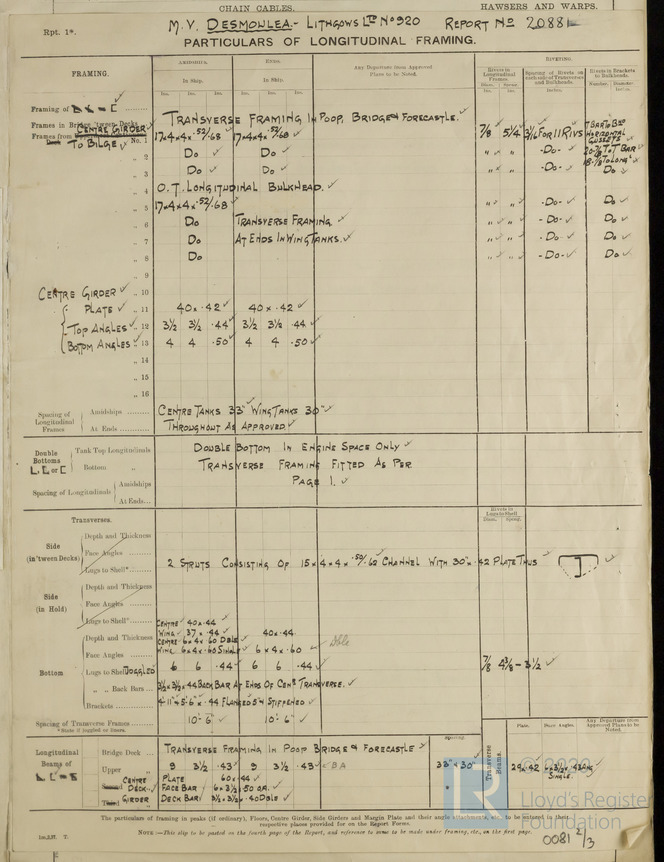 CHAIN CABLES. HAWSERS AND WARPS.
Rpt. 1*. M.V. DESMOULEA - LITHGOWS LTD No 920 REPORT No 20881
PARTICULARS OF LONGITUDINAL FRAMING.
FRAMING. AMIDSHIPS. ENDS. Any Departure from Approved Plans to be Noted. RIVETING.
In Ship. In Ship. Rivets in Longitudinal Frames. Spacing of Rivets on each side of Transverses and Bulkheads. Rivets in Brackets to Bulkheads.
Ins. Ins. Ins. Ins. Ins. Ins. Diam. Spcng. Inches. Number. Diameter
Framing of
TRANSVERSE FRAMING IN POOP, BRIDGE & FORECASTLE.
Frames in Bridge 'tween Decks
Frames from CENTRE GIRDER TO BILGE No. 1 17x4x4x.52/.68 17x4x4x.52/.68 7/8 5 1/4 3 1/2 FOR 11 RIVS
T BAR TO BHD HORIZONTAL GUSSETS
20-7/8 TO T BAR
18-7/8 TO LONGL
„ 2 DO DO „ „ -DO-
„ 3 DO DO „ „ -DO- DO
„ 4 O.T. LONGITUDINAL BULKHEAD.
„ 5 17x4x4x.52/.68 „ „ -DO- DO
„ 6 DO TRANSVERSE FRAMING „ „ -DO- DO
„ 7 DO AT ENDS IN WING TANKS. „ „ -DO- DO
„ 8 DO „ „ -DO- DO
„ 9
CENTRE GIRDER „ 10
PLATE „ 11 40 x .42 40 x .42
TOP ANGLES „ 12 3 1/2 3 1/2 .44 3 1/2 3 1/2 .44
BOTTOM ANGLES „ 13 4 4 .50 4 4 .50
„ 14
„ 15
„ 16
Spacing of Longitudinal Frames Amidships CENTRE TANKS 33" WING TANKS 30"
At Ends THROUGHOUT AS APPROVED.
Double Bottoms L, E or C Tank Top Longitudinals DOUBLE BOTTOM IN ENGINE SPACE ONLY
Bottom „ TRANSVERSE FRAMING FITTED AS PER
Spacing of Longitudinals Amidships PAGE 1.
At Ends
Transverses. Rivets in Lugs to Shell
Diam. Spcng.
Side (in 'tween Decks) Depth and Thickness
Face Angles
Lugs to Shell* 2 STRUTS CONSISTING OF 15x4x4x.50/.62 CHANNEL WITH 30"x.42 PLATE THUS
Side (in Hold) Depth and Thickness
Face Angles
Lugs to Shell*
CENTRE 40x.44
Bottom Depth and Thickness WING 37 x .44 40x.44
CENTRE 6x4x.60 DBLE Dble
Face Angles WING 6x4x.60 SINGLE 6x4x.60
Lugs to Shell JOGGLED 6 6 .44 6 6 .44 7/8 4 3/8 - 3 1/2
„ „ Back Bars 3 1/2x3 1/2x.44 BACK BAR AT ENDS OF CENR TRANSVERSE.
Brackets 4'11"x5'6"x.44 FLANGED 5" STIFFENED
Spacing of Transverse Frames 10'-6" 10'-6"
*State if joggled or liners.
Spacing. Transverse Beams. Plate. Shore Angles. Any Departure from Approved Plans to be Noted.
Longitudinal Beams of Bridge Deck TRANSVERSE FRAMING IN POOP BRIDGE & FORECASTLE
Upper „ 9 3 1/2 .43 9 3 1/2 .43 B A 33" 30" SINGLE.
CENTRE PLATE 60x.44
DECK FACE BAR 6x3 1/2x.50 AR.
GIRDER DECK BAR 3 1/2x3 1/2x.40 DBLE
The particulars of framing in peaks (if ordinary), Floors, Centre Girder, Side Girders and Margin Plate and their angle attachments, etc., to be entered in their respective places provided for on the Report Forms.
NOTE:—This slip to be pasted on the fourth page of the Report, and reference to same to be made under framing, etc., on the first page.
© 2020
Lloyd's Register
Foundation
0081 2/3